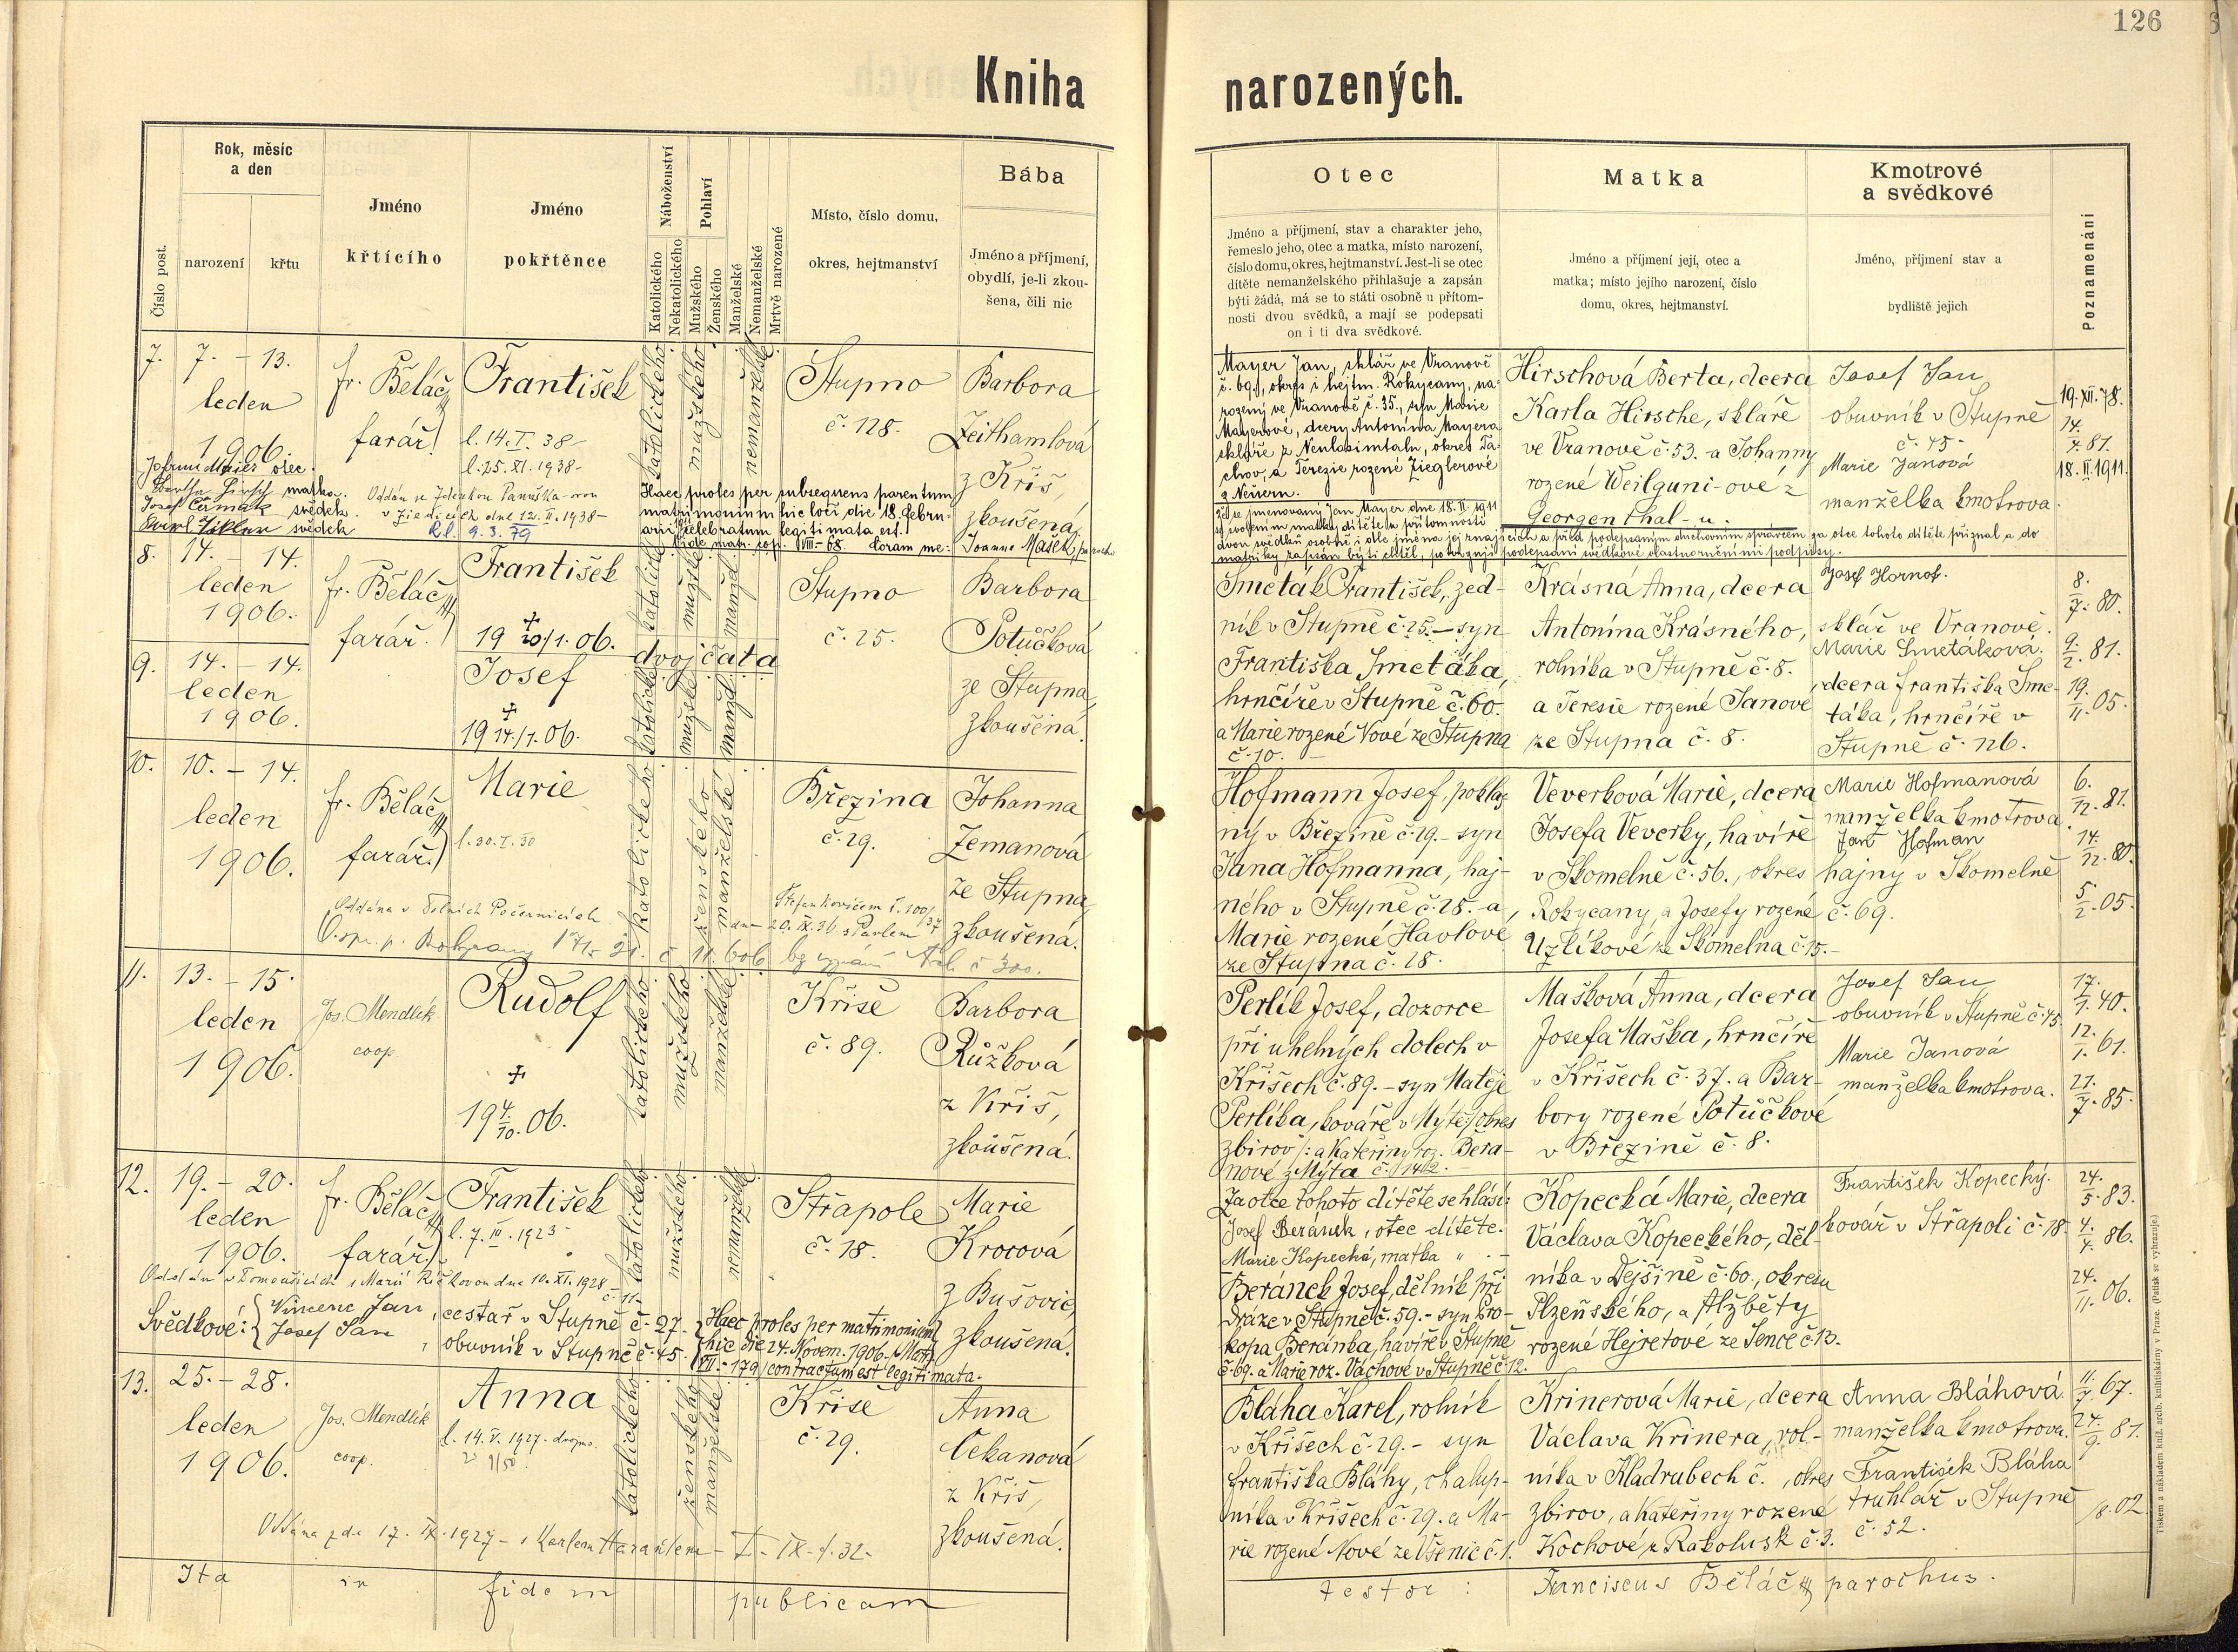 126
Kniha narozených.
Číslo post.
Rok, měsíc a den
narození
křtu
Jméno křtícího
Jméno pokřtěnce
Náboženství
Katolického
Nekatolického
Pohlaví
Mužského
Ženského
Manželské
Nemanželské
Mrtvě narozené
Místo, číslo domu,
okres, hejtmanství
Bába
Jméno a příjmení,
obydlí, je-li zkou-
šena, čili nic
Otec
Jméno a příjmení, stav a charakter jeho,
řemeslo jeho, otec a matka, místo narození,
číslo domu, okres, hejtmanství. Jest-li se otec
dítěte nemanželského přihlašuje a zapsán
býti žádá, má se to státi osobně u přítom-
nosti dvou svědků, a mají se podepsati
on i ti dva svědkové.
Matka
Jméno a příjmení její, otec a
matka; místo jejího narození, číslo
domu, okres, hejtmanství.
Kmotrové
a svědkové
Jméno, příjmení stav a
bydliště jejich
Poznamenání
7.
7. – 13.
leden
1906.
fr. Běláč
farář.
František
l. 14. I. 38–
l. 25. XI. 1938–
katolického
mužského
nemanželské
Stupno
č. 128.
Barbora
Zeithamlová
z Kříš,
zkoušená.
otec.
matka.
Josef Čermák svědek.
svědek
v dne 12. II. 1938–
9. 3. 79
Haec proles per subsequens parentum
matrimonium hic loci die 18. Febru-
arii 1911 celebratum legitimata est.
Vide matr. cop. VIII–68. Coram me: Joanne Mašek, parocho
Mayer Jan, sklář ve Vranově
č. 69, okres i hejtm. Rokycany, na-
rozený ve Vranově č. 35., syn Marie
Mayerové, dcery Antonína Mayera
skláře z, okres Ta-
chov, a Terezie rozené Zieglerové
z Neuern.
Že se jmenovaný Jan Mayer dne 18. II. 1911
se svolením matky dítěte u přítomnosti
dvou svědků osobně i dle jména jej znajících a před podepsaným duchovním správcem za otce tohoto dítěte přiznal a do
matriky zapsán býti chtěl, potvrzují podepsaní svědkové vlastnoručními podpisy.
Hirschová Berta, dcera
Karla Hirsche, skláře
ve Vranově č. 53. a Johanny
rozené Weilguni-ové z
Georgenthal-u.
Josef Jan
obuvník v Stupně
č. 45–
Marie Janová
manželka kmotrova.
19. XII. 78.
14.
4. 81.
18. II. 1911.
8.
14. – 14.
leden
1906.
fr. Běláč
farář.
František
19 20/1. 06.
katolické
mužské
manžel.
dvojčata
Stupno
č. 25.
Barbora
Potůčková
ze Stupna,
zkoušená.
Smeták František, zed-
ník v Stupně č. 25. – syn
Františka Smetáka,
hrnčíře v Stupně č. 60.
a Marie rozené Nové ze Stupna
č. 10. –
Krásná Anna, dcera
Antonína Krásného,
rolníka v Stupně č. 8.
a Teresie rozené Janové
ze Stupna č. 8.
Josef Hornof.
sklář ve Vranově.
Marie Smetáková.
dcera františka Sme-
táka, hrnčíře v
Stupně č. 126.
8.
7. 80.
9.
2. 81.
19.
11. 05.
9.
14. – 14.
leden
1906.
Josef
19 14./1. 06.
katolické
mužské
manžel.
10.
10. – 14.
leden
1906.
fr. Běláč
farář.
Marie
l. 30. I. 30
katolického
ženského
manželské
Březina
č. 29.
Johanna
Zemanová
ze Stupna,
zkoušená.
Oddána v Dolních Počernicích
dne 20. IX. 36 s Pavlem
Štefankovičem č. 100/37
Hofmann Josef, poklas-
ný v Březině č. 29. – syn
Jana Hofmanna, haj-
ného v Stupně č. 28. – a,
Marie rozené Havlové
ze Stupna č. 28.
Veverková Marie, dcera
Josefa Veverky, havíře
v Skomelně č. 56., okres
Rokycany, a Josefy rozené
Uzlíkové ze Skomelna č. 15.–
Marie Hofmanová
manželka kmotrova.
Jan Hofman
hajný v Skomelně
č. 69.
6.
12. 81.
14.
12. 80.
5
2. 05.
11.
13. – 15.
leden
1906.
Jos. Mendlík
coop.
Rudolf
19 4./10. 06.
katolického
mužského
manželské
Kříše
č. 89.
Barbora
Růžková
z Kříš,
zkoušená.
Perlík Josef, dozorce
při uhelných dolech v
Kříšech č. 89. – syn Matěje
Perlíka, kováře v Mýtě /:okres
Zbirov:/ a Kateřiny roz. Bera-
nové z Mýta č. 142. –
Mašková Anna, dcera
Josefa Maška, hrnčíře
v Kříšech č. 37. a Bar-
bory rozené Potůčkové
v Březině č. 8.
Josef Jan
obuvník v Stupně č. 45
Marie Janová
manželka kmotrova.
17.
1. 40.
12.
1. 61.
21.
7. 85.
12.
19. – 20.
leden
1906.
fr. Běláč
farář.
František
l. 7. III. 1923–
katolického
mužského
nemanželské
Střapole
č. 18.
Marie
Krocová
z Bušovic,
zkoušená.
Oddán v s Marií dne 10. XI. 1928–
Svědkové:
Vincenc Jan, cestař v Stupně č. 27.
Josef Jan, obuvník v Stupně č. 45.
Haec proles per matrimonium
hic die 24. Novem. 1906. (Matr.
VII.–179) contractum est legitimata.
Za otce tohoto dítěte se hlásí:
Josef Beránek, otec dítěte.
Marie Kopecká, matka „ . –
Beránek Josef, dělník při
dráze v Stupně č. 59. – syn Pro-
kopa Beránka, havíře v Stupně
č. 69. a Marie roz. Váchové v Stupně č. 12.
Kopecká Marie, dcera
Václava Kopeckého, děl-
níka v Dejšině č. 60., okresu
Plzeňského, a Alžběty
rozené Hejretové ze Senec č. 13.
František Kopecký.
kovář v Střapoli č. 18.
24.
5. 83.
4.
4. 86.
24.
11. 06.
13.
25. – 28.
leden
1906.
Jos. Mendlík
coop.
Anna
l. 14. V. 1927–
katolického
ženského
manželské
Kříše
č. 29.
Anna
Čekanová
z Kříš,
zkoušená.
Oddána zde 17. IX. 1927– s Karlem – I– IX– f. 32–
Bláha Karel, rolník
v Kříšech č. 29. – syn
františka Bláhy, chalup-
níka v Kříšech č. 29. a Ma-
rie rozené Nové ze Všenic č. 1.
Krinerová Marie, dcera
Václava Krinera, rol-
níka v Kladrubech č. , okres
Zbirov, a Kateřiny rozené
Kochové z Rakolusk č. 3.
Anna Bláhová
manželka kmotrova.
František Bláha
truhlář v Stupně
č. 52.
11.
7. 67.
24.
9. 81.
/8. 02.
Ita in fidem publicam testor: Franciscus Běláč parochus.
Tiskem a nákladem kníž. arcib. knihtiskárny v Praze. (Patisk se vyhrazuje.)